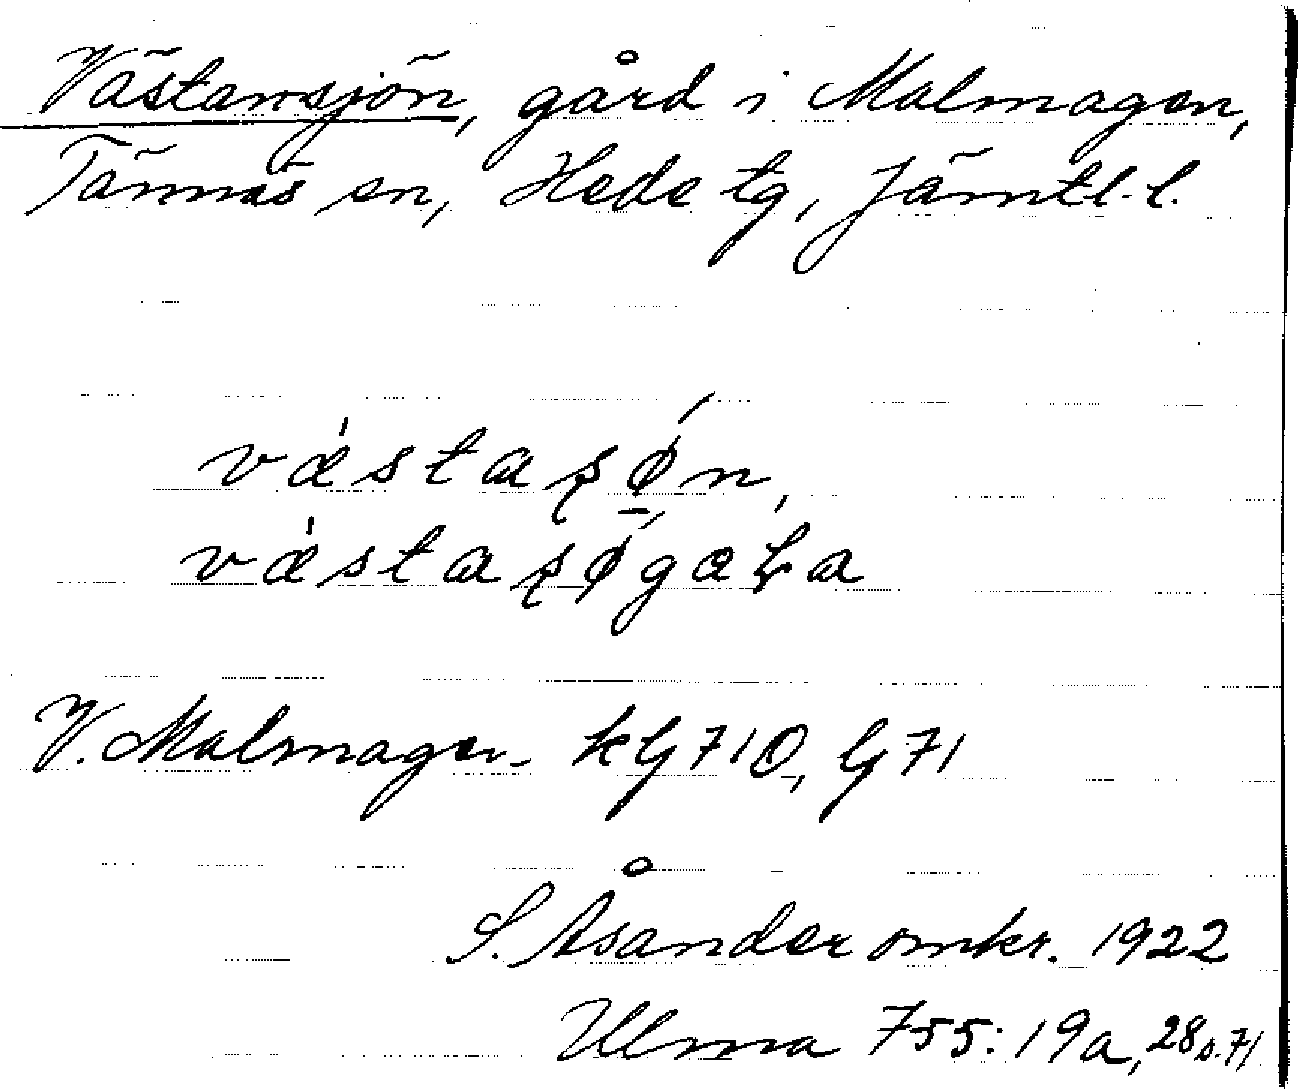 Västansjön, gård i Malmagen,
Tännäs sn, Hede tg, Jämtl. l.
væ̀stasǿ̜n,
væ̀stasǿ̜gaɽa
V. Malmagen kG710, G71
S. Åsander omkr. 1922
Ulma 755: 19a, 28 s. 71